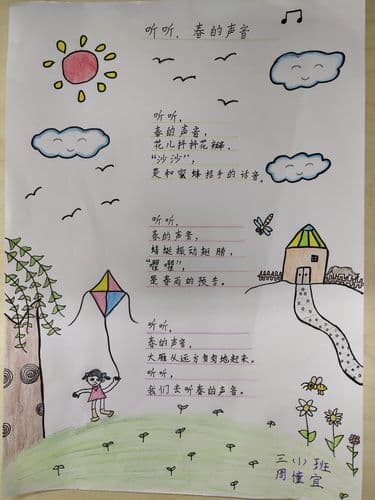 听听，春的声音
听听，
春的声音，
花儿抖抖花瓣，
“沙沙”，
是和蜜蜂招手的话音。
听听，
春的声音，
蜻蜓振动翅膀，
“嚁嚁”，
是春雨的预告。
听听，
春的声音，
大雁从远方匆匆地起来。
听听，
我们去听春的声音。
三小班
周憧宜